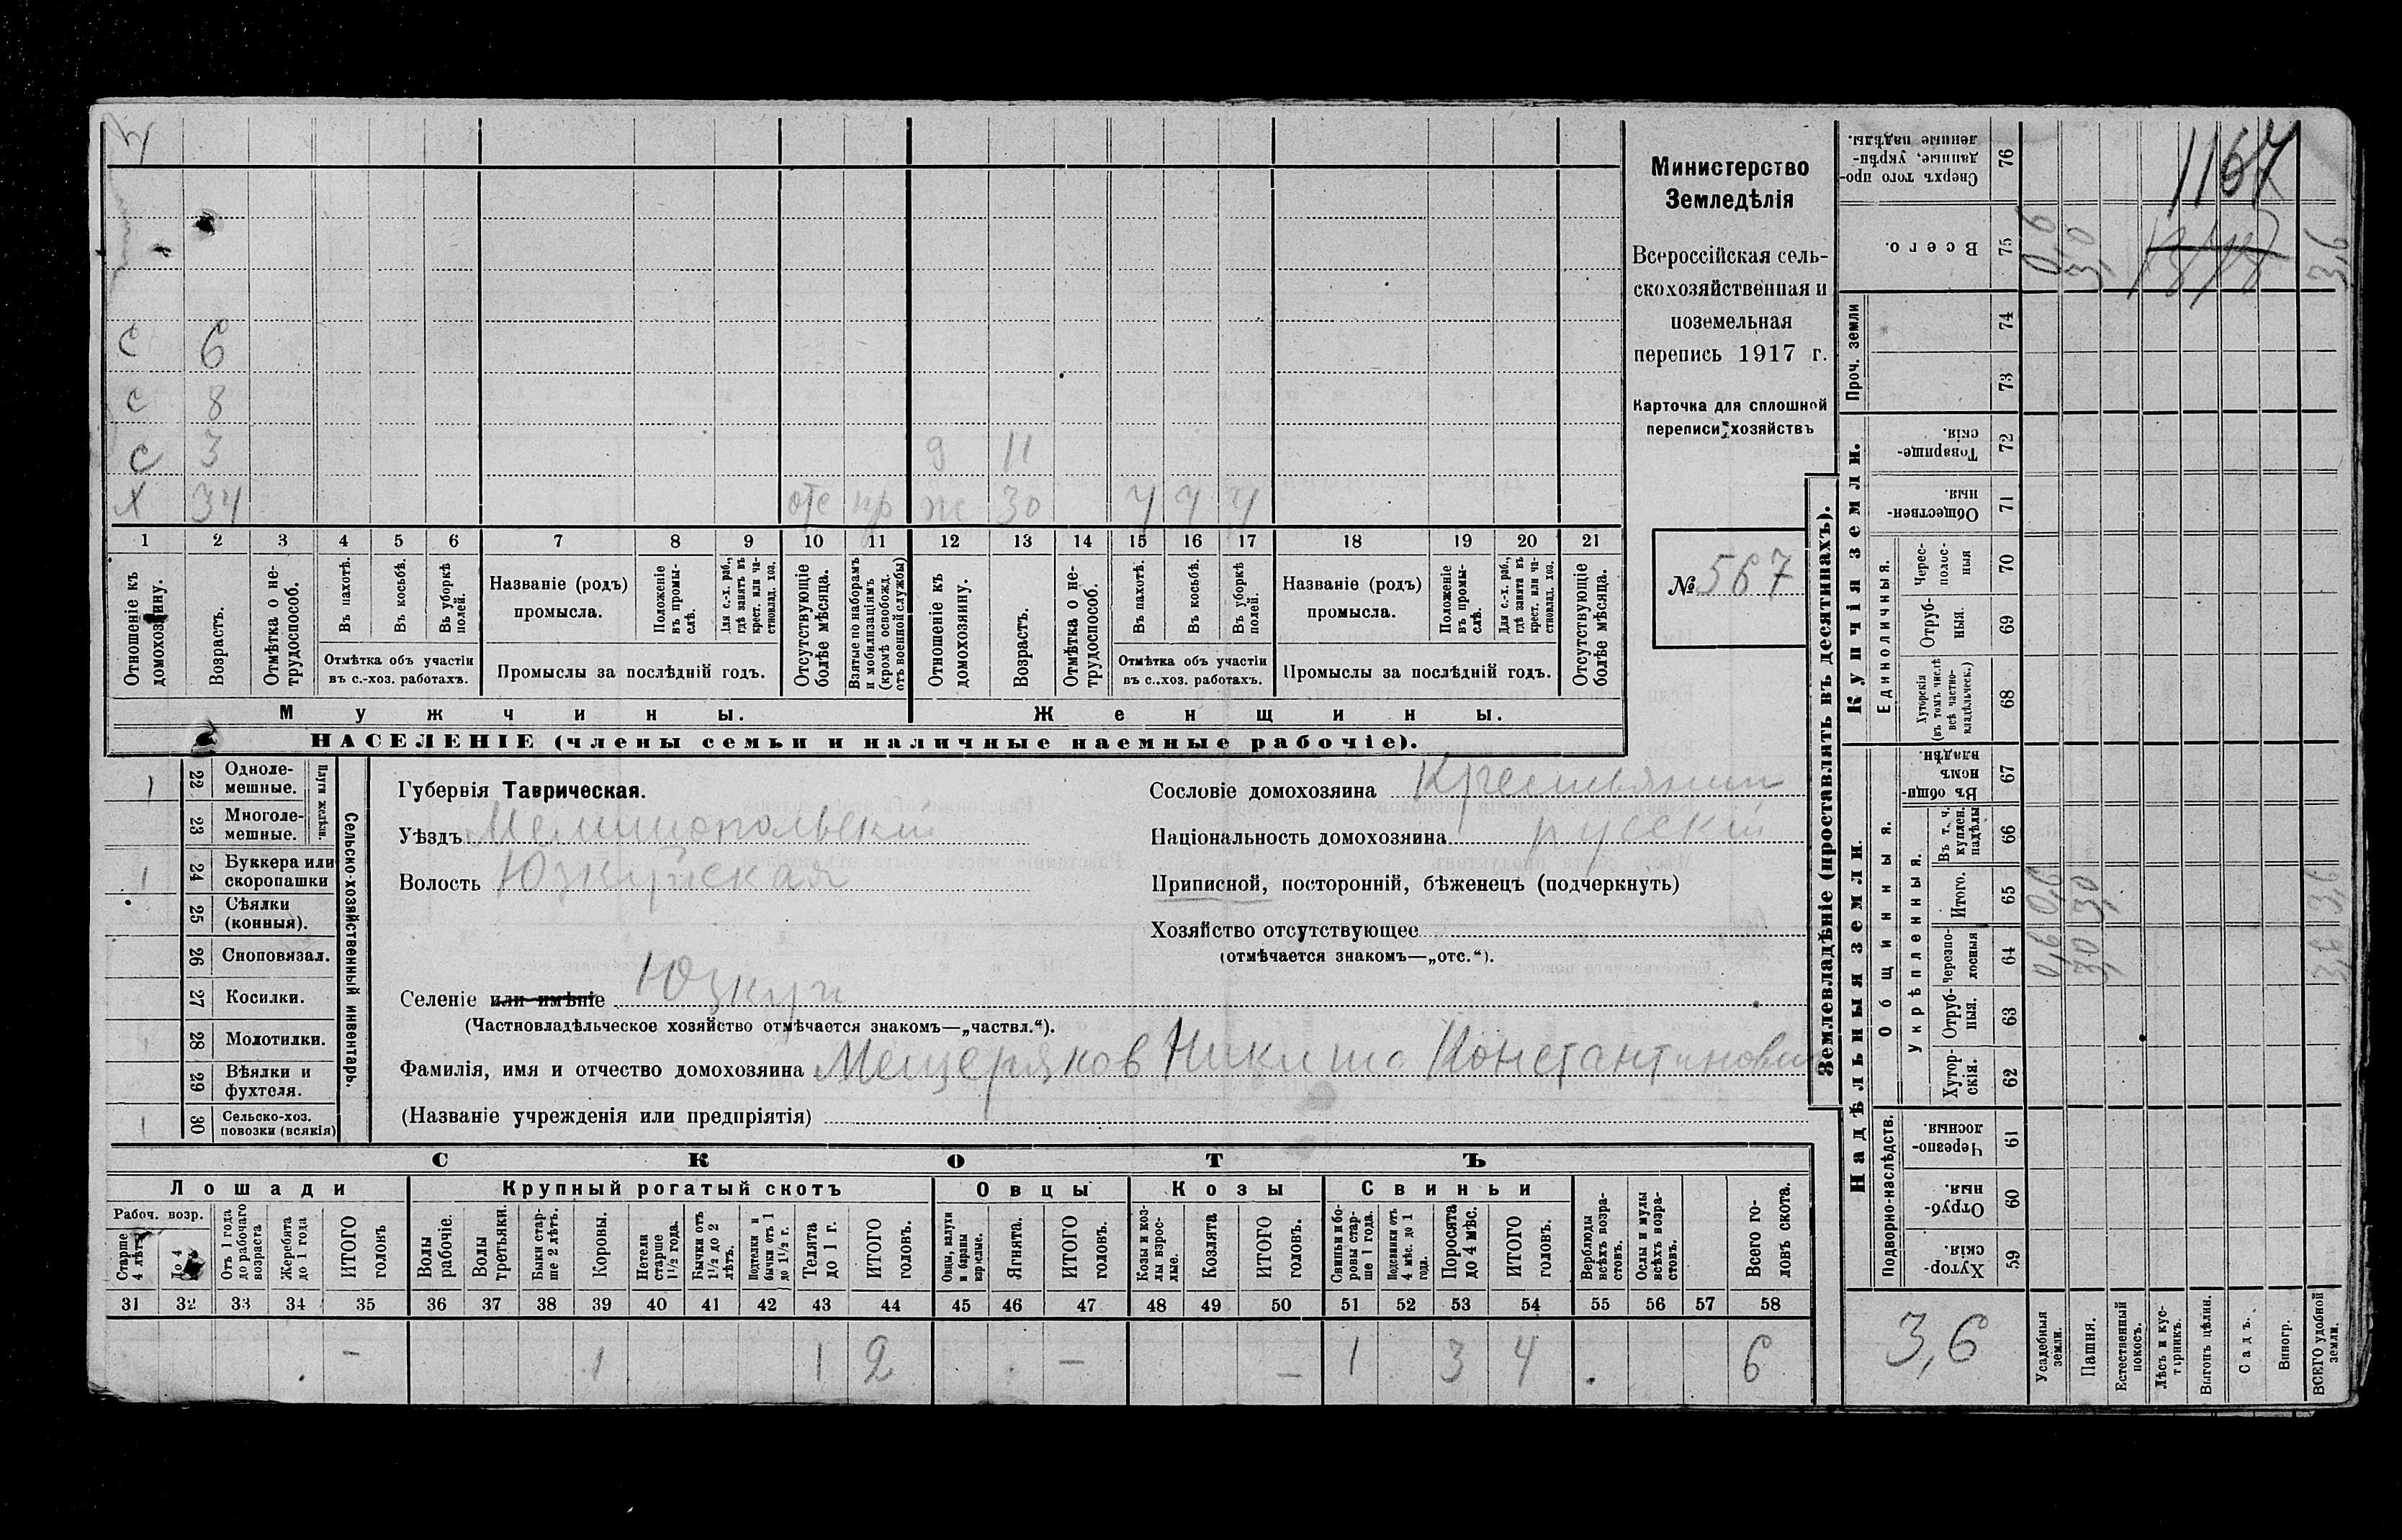 4
С 6
С 8
С 3 д 11
Х 34 отс пр ж 30 ч ч ч
1 2 3 4 5 6 7 8 9 10 11 12 13 14 15 16 17 18 19 20 21
Отношеніе къ домохозяину.
Возрастъ.
Отмѣтка о не-
трудоспособ.
Въ пахотѣ.
Въ косьбѣ.
Въ уборкѣ
полей.
Отмѣтка объ участіи
въ с.-хоз. работахъ.
Названіе (родъ)
промысла.
Положеніе
въ промы-
слѣ.
Для с.-х. раб.,
гдѣ занятъ въ
крест. или ча-
стновлад. хоз.
Промыслы за послѣдній годъ.
Отсутствующіе
болѣе мѣсяца.
Взятые по наборамъ
и мобилизаціямъ
(кромѣ освобожд.
отъ военной службы)
Отношеніе къ
домохозяину.
Возрастъ.
Отмѣтка о не-
трудоспособ.
Въ пахотѣ.
Въ косьбѣ.
Въ уборкѣ
полей.
Отмѣтка объ участіи
въ с..хоз. работахъ.
Названіе (родъ)
промысла.
Положеніе
въ промы-
слѣ.
Для с.-х. раб.,
гдѣ занята въ
крест. или ча-
стновлад. хоз.
Промыслы за послѣдній годъ.
Отсутствующіе
болѣе мѣсяца.
Мужчины.
Женщины.
НАСЕЛЕНІЕ (члены семьи и наличные наемные рабочіе).
Министерство
Земледѣлія
Всероссійская сель-
скохозяйственная и
поземельная
перепись 1917 г.
Карточка для сплошной
переписи хозяйствъ
№ 567
1 22 Одноле-
мешные.
23 Многоле-
мешные.
Плуги желѣзн.
1 24 Буккера или
скоропашки
25 Сѣялки
(конныя).
26 Сноповязал.
27 Косилки.
28 Молотилки.
29 Вѣялки и
фухтеля.
1 30 Сельско-хоз.
повозки (всякія)
Сельско-хозяйственный инвентарь.
Губернія Таврическая.
Уѣздъ Мелитопольский
Волость Юзкуйская
Селеніе или имѣніе Юзкуи
(Частновладѣльческое хозяйство отмѣчается знакомъ—„частвл.“).
Фамилія, имя и отчество домохозяина Мещеряков Никита Константинович
(Названіе учрежденія или предпріятія)
Сословіе домохозяина Крестьянин
Національность домохозяина русский
Приписной, посторонній, бѣженецъ (подчеркнуть)
Хозяйство отсутствующее
(отмѣчается знакомъ—„отс.“).
СКОТЪ
Лошади
Крупный рогатый скотъ
Овцы
Козы
Свиньи
Рабоч. возр.
Старше
4 лѣтъ
До 4
Отъ 1 года
до рабочаго
возраста
Жеребята
до 1 года
ИТОГО
головъ
Волы
рабочіе.
Волы
третьяки.
Быки стар-
ше 2 лѣтъ.
Коровы.
Нетели
старше
1½ года.
Бычки отъ
1½ до 2
лѣтъ.
Подтелки и
бычки отъ 1
до 1½ г.
Телята
до 1 г.
ИТОГО
головъ.
Овцы, валухи
и бараны
взрослые.
Ягнята.
ИТОГО
головъ.
Козы и коз-
лы взрос-
лые.
Козлята
ИТОГО
головъ.
Свиньи и бо-
ровы стар-
ше 1 года.
Подсвинки отъ
4 мѣс. до 1
года.
Поросята
до 4 мѣс.
ИТОГО
головъ.
Верблюды
всѣхъ возра-
стовъ.
Ослы и мулы
всѣхъ возра-
стовъ.
Всего го-
ловъ скота.
31 32 33 34 35 36 37 38 39 40 41 42 43 44 45 46 47 48 49 50 51 52 53 54 55 56 57 58
– 1 1 2 – – 1 3 4 6
Землевладѣніе (проставлять въ десятинахъ).
Сверхъ того про-
данные, укрѣп-
ленные надѣлы.
76
1167
Всего.
75 0,6 3,0 3,6
Проч. земли
74
73
Купчія земли.
Товарище-
скія.
72
Обществен-
ныя.
71
Единоличныя.
Черес-
полос-
ныя
70
Отруб-
ныя.
69
Хуторскія
(въ томъ числѣ
всѣ частно-
владѣльческ.)
68
Надѣльныя земли.
Общинныя.
Въ общи-
номъ
владѣн.
67
Укрѣпленныя.
Въ т. ч.
куплен.
надѣлы
66
Итого.
65 0,6 3,0 3,6
Черезпо-
лосныя
64 0,6 3,0 3,6
Отруб-
ныя.
63
Хутор-
скія.
62
Подворно-наслѣдств.
Черезпо-
лосныя.
61
Отруб-
ныя.
60
Хутор-
скія.
59
3,6
Усадебныя
земли.
Пашня.
Естественный
покосъ.
Лѣсъ и кус-
тарникъ.
Выгонъ цѣлин.
Садъ.
Виногр.
ВСЕГО удобной
земли.